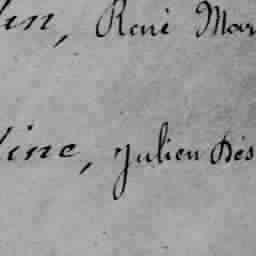 René Mar
ine, Julien Dés